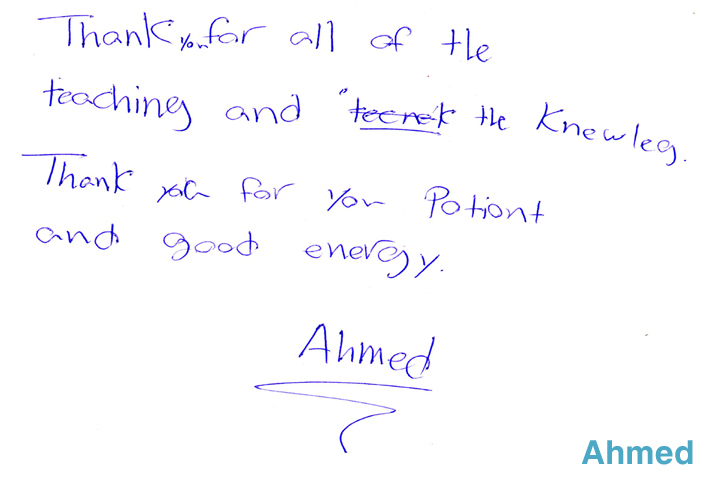 Thank you for all of the
teaching and the Knewleg.
Thank you for you Potiont
and good energy.
Ahmed
Ahmed